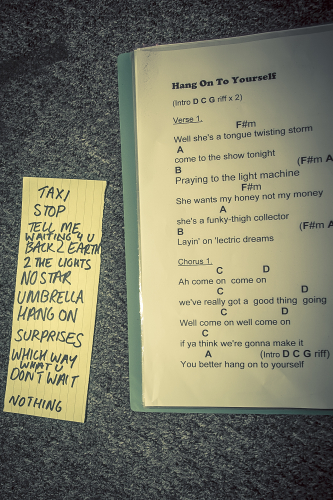 TAXI
STOP
TELL ME
WAITING 4 U
BACK 2 EARTH
2 THE LIGHTS
NO STAR
UMBRELLA
HANG ON
SURPRISES
WHICH WAY
WHAT U
DON'T WAIT
NOTHING
Hang On To Yourself
(Intro D C G riff x 2)
Verse 1.
F#m
Well she's a tongue twisting storm
A
come to the show tonight
B (F#m A
Praying to the light machine
F#m
She wants my honey not my money
A
she's a funky-thigh collector
B (F#m A
Layin' on 'lectric dreams
Chorus 1.
C D
Ah come on come on
C D
we've really got a good thing going
C D
Well come on well come on
C
if ya think we're gonna make it
A (Intro D C G riff)
You better hang on to yourself